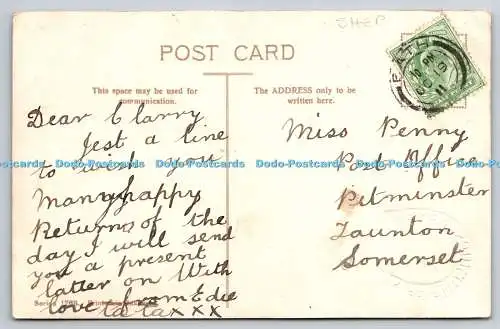 SHEP
POST CARD
This space may be used for
communication.
The ADDRESS only to be
written here.
Dear Clarry
Jest a line
to wish you
Many happy
Returns of the
day I will send
you a present
latter on With
love from Edie
ta ta xxx
Miss Penny
Post Office
Pitminster
Taunton
Somerset
Dodo-Postcards Dodo-Postcards Dodo-Postcards Dodo-Postcards Dodo-Postcards Dodo-Postcards
Series